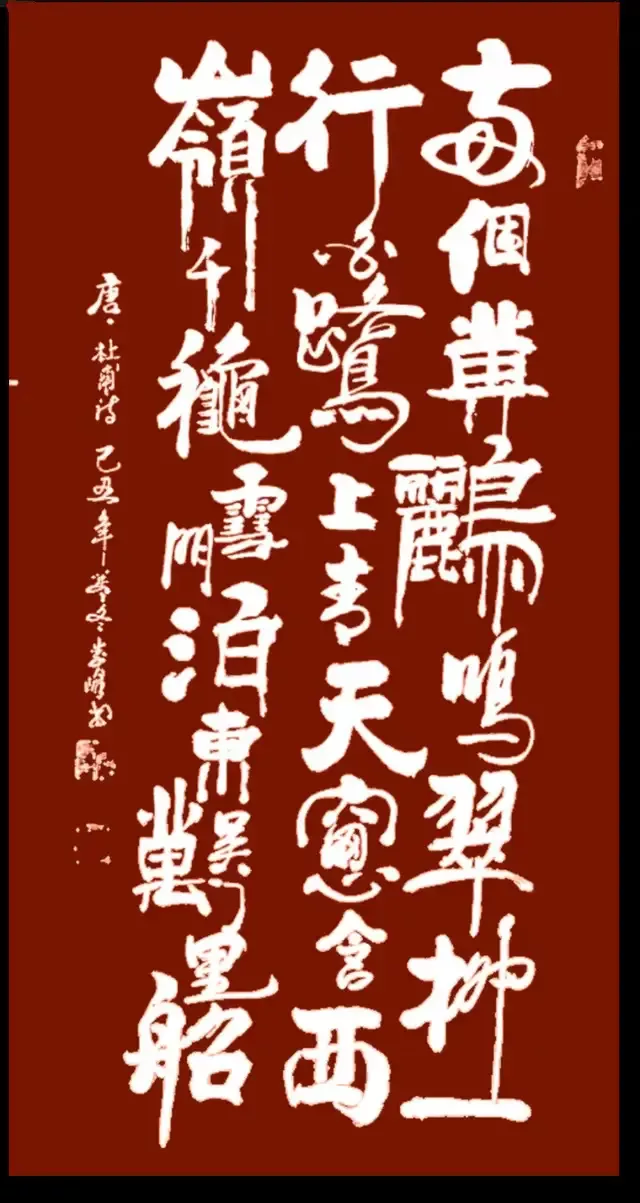 兩個黃鸝鳴翠柳一
行白鷺上青天窻含西
嶺千龝雪門泊東吳萬里船
唐、杜甫诗 己丑年 冬 峰书